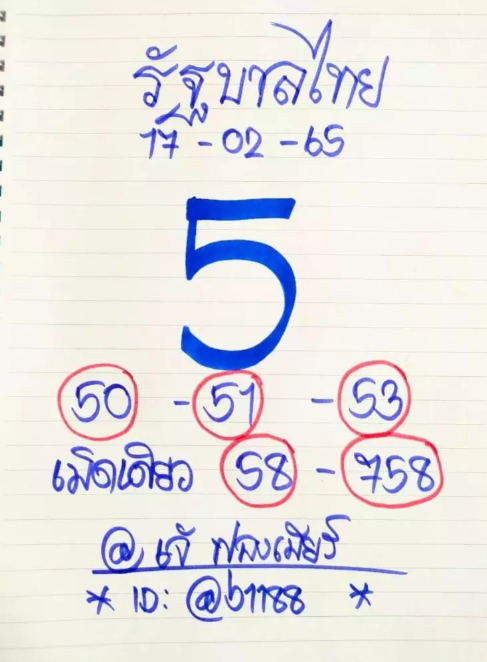 รัฐบาลไทย
17-02-65
5
50 - 51 - 53
เม็ดเดียว 58 - 758
@ เจ๊ ฟองเบียร์
* ID: @b1188 *